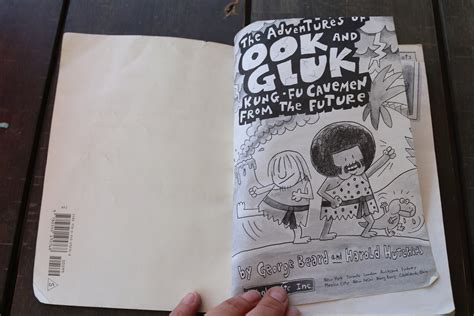 The Adventures of
OOK AND
GLUK
KUNG-FU CAVEMEN
FROM THE FUTURE
by George Beard and Harold Hutchins
Inc
New York Toronto London Auckland Sydney
Mexico City New Delhi Hong Kong